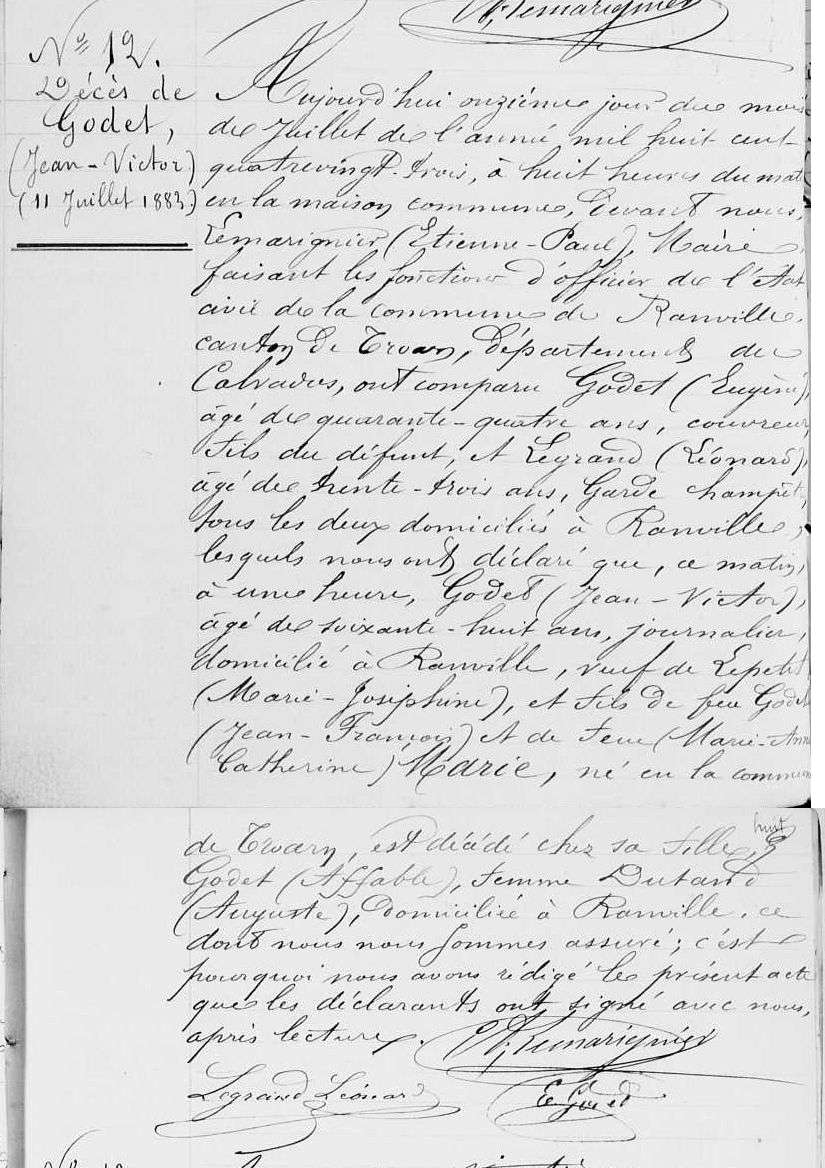 Lemarignier
N° 12.
Décès de
Godet,
(Jean-Victor)
(11 Juillet 1883)
Aujourd'hui onzième jour du mois
de Juillet de l'année mil huit cent
quatrevingt-trois, à huit heures du mat
en la maison commune, Devant nous,
Lemarignier (Etienne-Paul), Maire,
faisant les fonctions d'officier de l'état
civil de la commune de Ranville,
canton de Troarn, département du
Calvados, ont comparu Godet (Eugène),
âgé de quarante-quatre ans, couvreur,
fils du défunt, et Legrand (Léonard),
âgé de trente-trois ans, Garde champêt
tous les deux domiciliés à Ranville,
lesquels nous ont déclaré que, ce matin,
à une heure, Godet (Jean-Victor),
âgé de soixante-huit ans, journalier,
domicilié à Ranville, veuf de Lepetit
(Marie-Joséphine), et fils de feu Godet
(Jean-François) et de feue (Marie-Anne
Catherine) Marie, né en la commune
huit
de Troarn, est décédé chez sa fille,
Godet (Affable), femme Dutand
(Auguste), domiciliée à Ranville. ce
dont nous nous sommes assuré; c'est
pourquoi nous avons rédigé le présent acte
que les déclarants ont signé avec nous,
après lecture. Lemarignier
Legrand Léonard E Godet